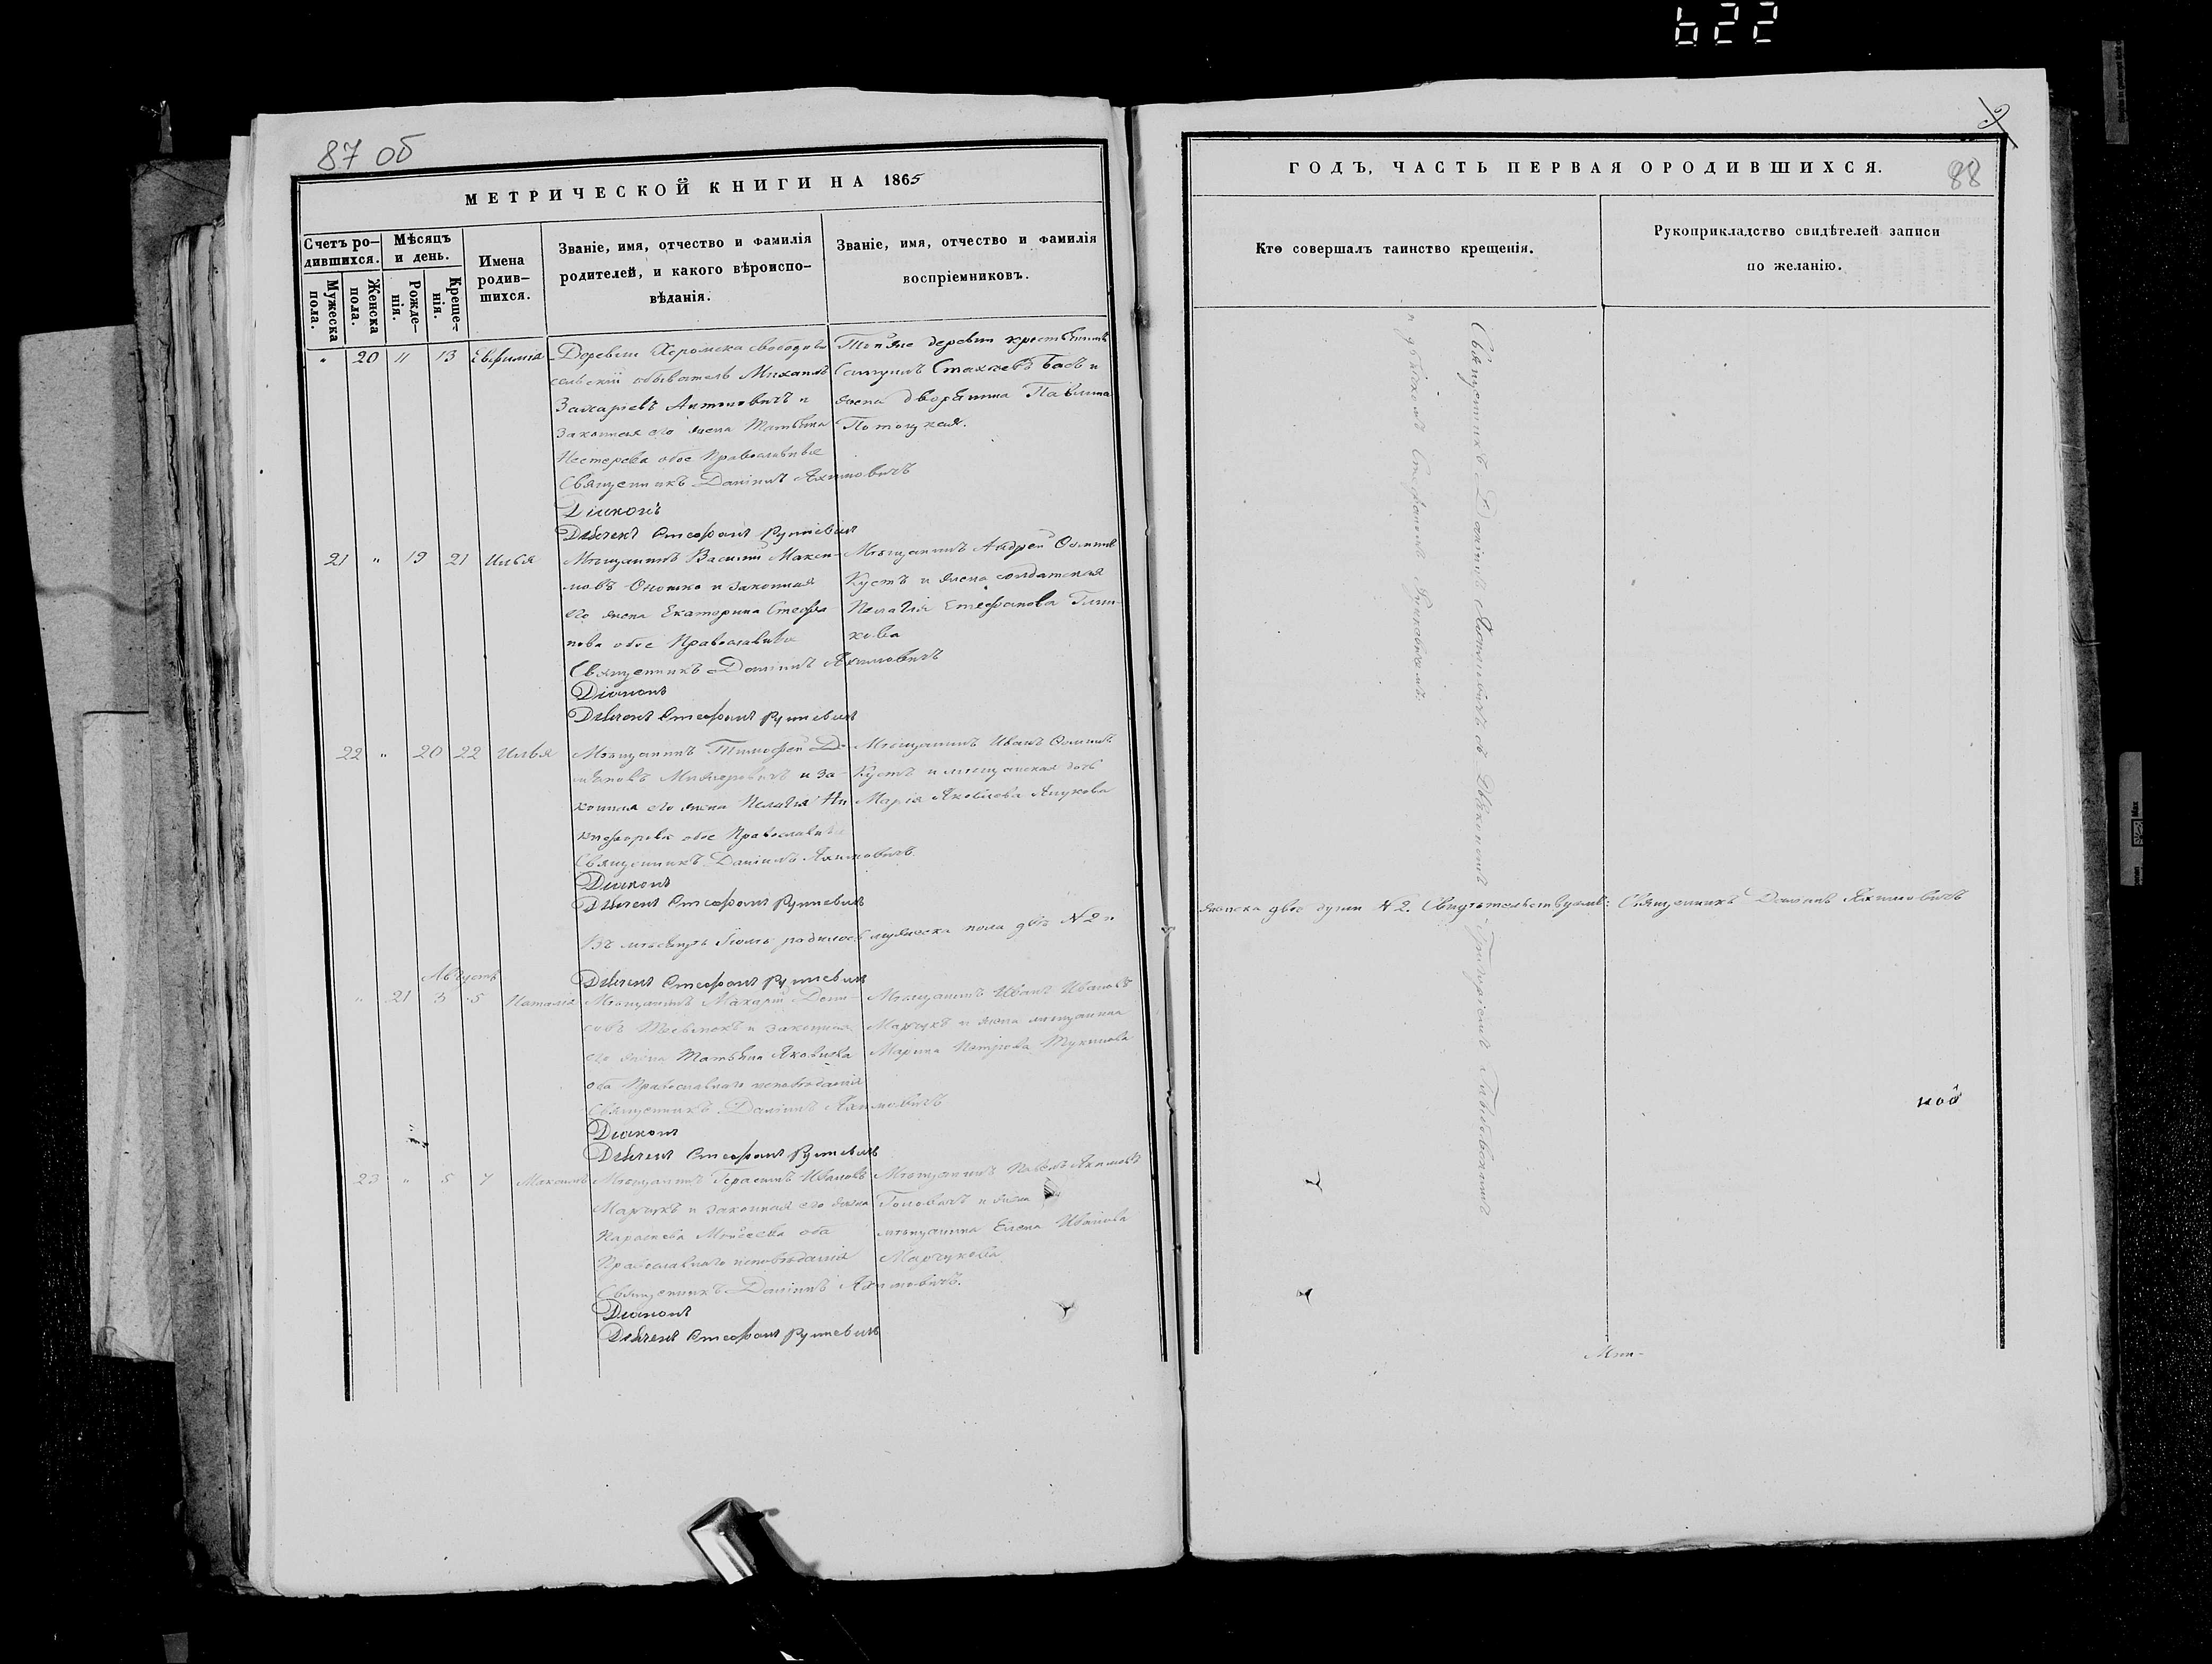 622
87 об
МЕТРИЧЕСКОЙ КНИГИ НА 1865
Счетъ ро-
дившихся.
Мужеска
пола.
Женска
пола.
Мѣсяцъ
и день.
Рожде-
нія.
Креще-
нія.
Имена
родив-
шихся.
Званіе, имя, отчество и фамилія
родителей, и какого вѣроиспо-
вѣданія.
Званіе, имя, отчество и фамилія
воспріемниковъ.
" 20 11 13 Евфимія
Деревни свободный
сельскій обыватель Михаилъ
Захаріевъ Антоновичъ и
законная его жена Татьяна
Нестерова обое Православные
Священникъ Даніилъ Яхимовичъ
Діаконъ
Дьячекъ Стефанъ Рункевичъ
Той же деревни крестьянинъ
Самуилъ Стахіевъ Басъ и
жена дворянина Павлина
Потоцкая.
21 " 19 21 Илья
Мѣщанинъ Василій Макси-
мовъ Оношко и законная
его жена Екатерина Стефа
нова обое Православные
Священникъ Даніилъ Яхимовичъ
Діаконъ
Дьячекъ Стефанъ Рункевичъ
Мѣщанинъ Андрей
Кустъ и жена солдатская
Пелагія Стефанова
кова
22 " 20 22 Илья
Мѣщанинъ Тимофей Де-
мьяновъ и за-
конная его жена Пелагія Ни
кифорова обое Православные
Священникъ Даніилъ Яхимовичъ
Діаконъ
Дьячекъ Стефанъ Рункевичъ
Мѣщанинъ Иванъ
Кустъ и мѣщанская дочь
Марія Яковлева
Въ мѣсяцѣ Іюлѣ родилось мужеска пола двѣ № 2 и
Дьячекъ Стефанъ Рункевичъ
Августъ
" 21 3 5 Наталія
Мѣщанинъ Макарій Дени-
совъ и законная
его жена Татьяна Яковлева
оба Православнаго исповѣданія
Священникъ Даніилъ Яхимовичъ
Діаконъ
Дьячекъ Стефанъ Рункевичъ
Мѣщанинъ Иванъ Ивановъ
Марчукъ и жена мѣщанина
Марина Петрова
23 " 5 7 Максимъ
Мѣщанинъ Герасимъ Ивановъ
Марчукъ и законная его жена
Параскева Моисеева оба
Православнаго исповѣданія
Священникъ Даніилъ Яхимовичъ.
Діаконъ
Дьячекъ Стефанъ Рункевичъ
Мѣщанинъ Павелъ Якимовъ
Головачъ и жена
мѣщанина Елена Иванова
Марчукова
ГОДЪ, ЧАСТЬ ПЕРВАЯ О РОДИВШИХСЯ.
88
Кто совершалъ таинство крещенія.
Рукоприкладство свидѣтелей записи
по желанію.
Священникъ Даніилъ Яхимовичъ съ Діакономъ Григоріемъ
и дьячкомъ Стефаномъ Рункевичемъ.
женска двѣ души № 2. Свидѣтельствуемъ: Священникъ Даніилъ Яхимовичъ